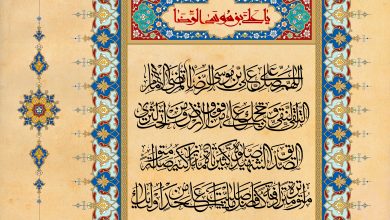 یا علی بن موسی الرضا
اللهم صل علی علی بن موسی الرضا المرتضی الامام
التقی النقی و حجتک علی من فوق الارض و من تحت الثری
الصدیق الشهید صلاة کثیرة تامة زاکیة متواصلة
متواترة مترادفة کافضل ما صلیت علی احد من اولیائک